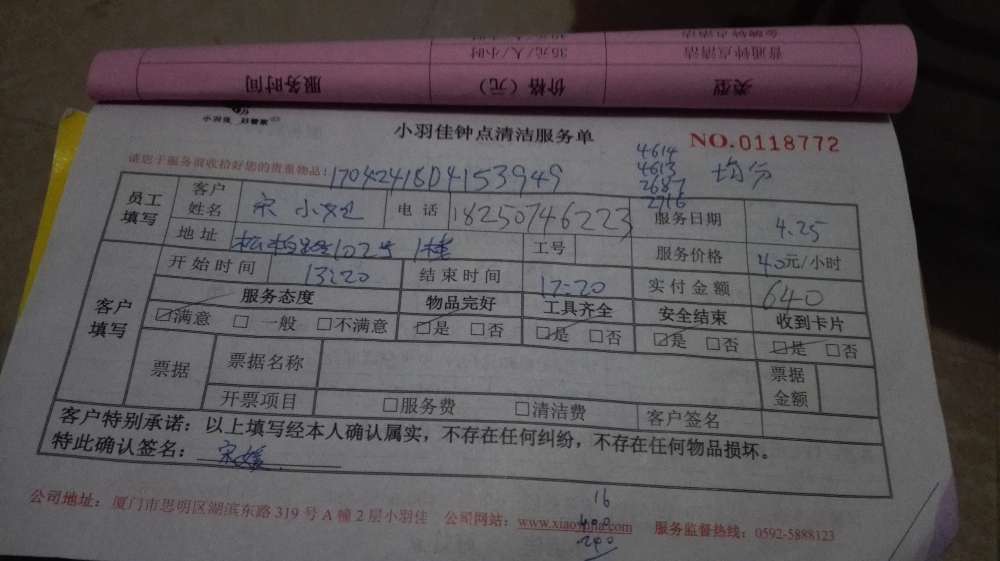 普通钟点清洁 36元/人/小时
类型 价格（元） 服务时间
小羽佳 好管家
小羽佳钟点清洁服务单 NO.0118772
4614
4613
2687
2716
均分
请您于服务前收拾好您的贵重物品！
1704241804153949
员工填写 客户姓名 宋小姐 电话 18250746223 服务日期 4.25
地址 松柏路102号 1幢 工号 服务价格 40元/小时
客户填写 开始时间 13:20 结束时间 17:20 实付金额 640
服务态度 物品完好 工具齐全 安全结束 收到卡片
☑满意 □一般 □不满意 ☑是 □否 ☑是 □否 ☑是 □否 ☑是 □否
票据 票据名称 票据金额
开票项目 □服务费 □清洁费 客户签名
客户特别承诺：以上填写经本人确认属实，不存在任何纠纷，不存在任何物品损坏。
特此确认签名：宋媛
16
公司地址：厦门市思明区湖滨东路319号A幢2层小羽佳 公司网站： 服务监督热线：0592-5888123
240